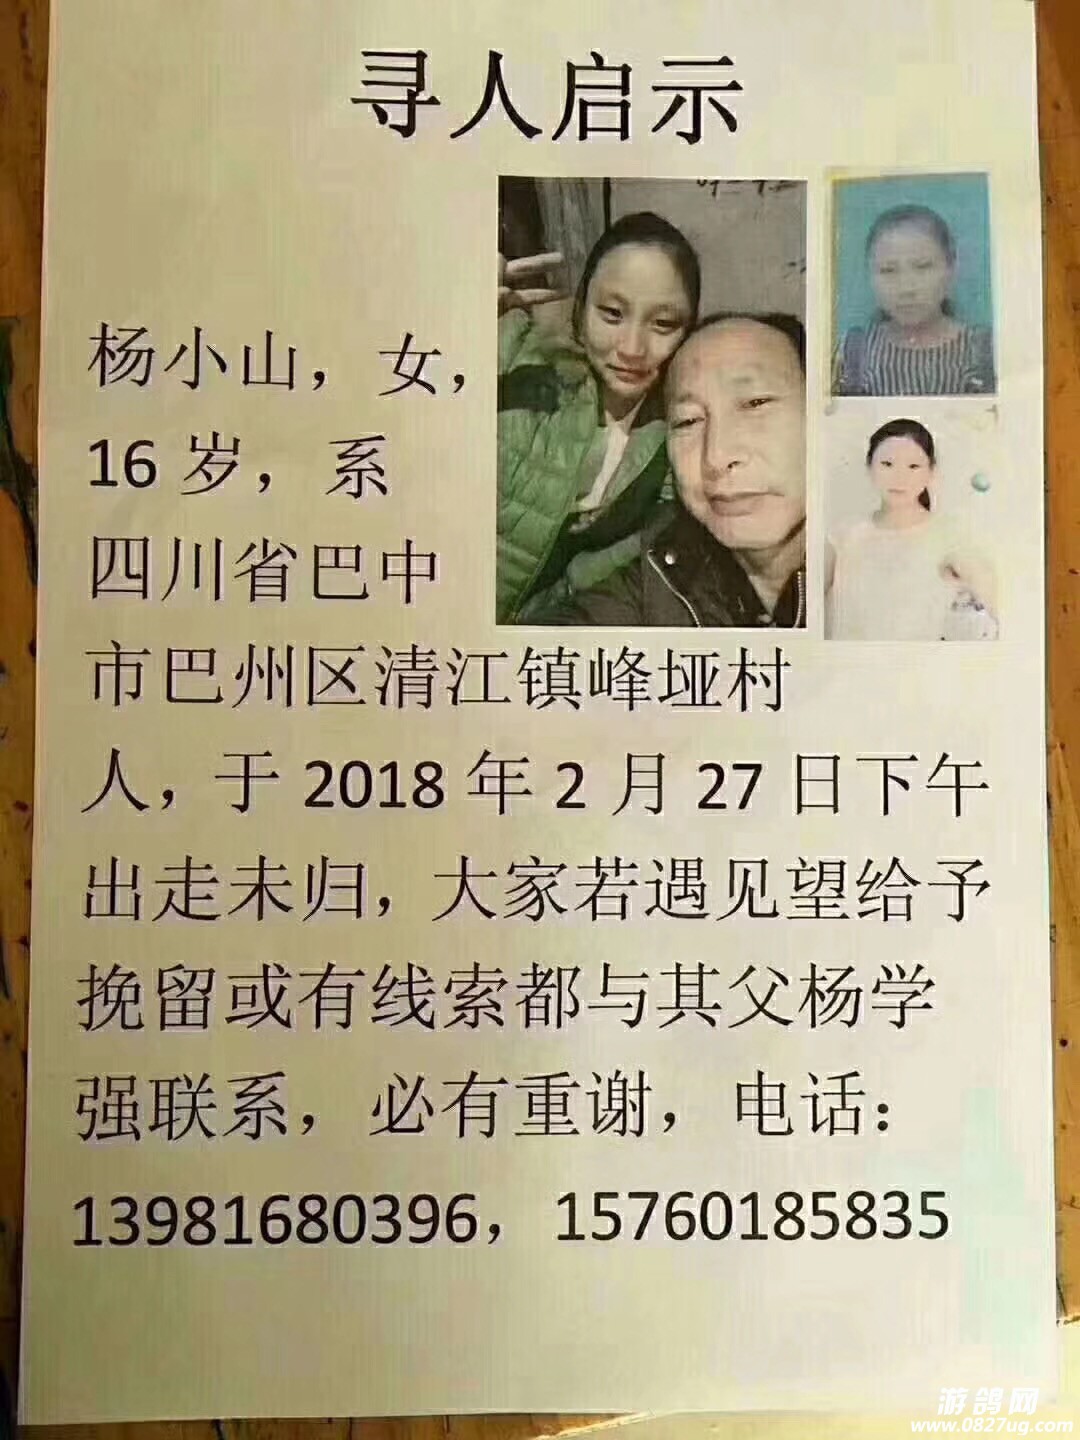 寻人启示
杨小山，女，
16 岁，系
四川省巴中
市巴州区清江镇峰垭村
人，于 2018 年 2 月 27 日下午
出走未归，大家若遇见望给予
挽留或有线索都与其父杨学
强联系，必有重谢，电话：
13981680396，15760185835
游鸽网
www.0827ug.com